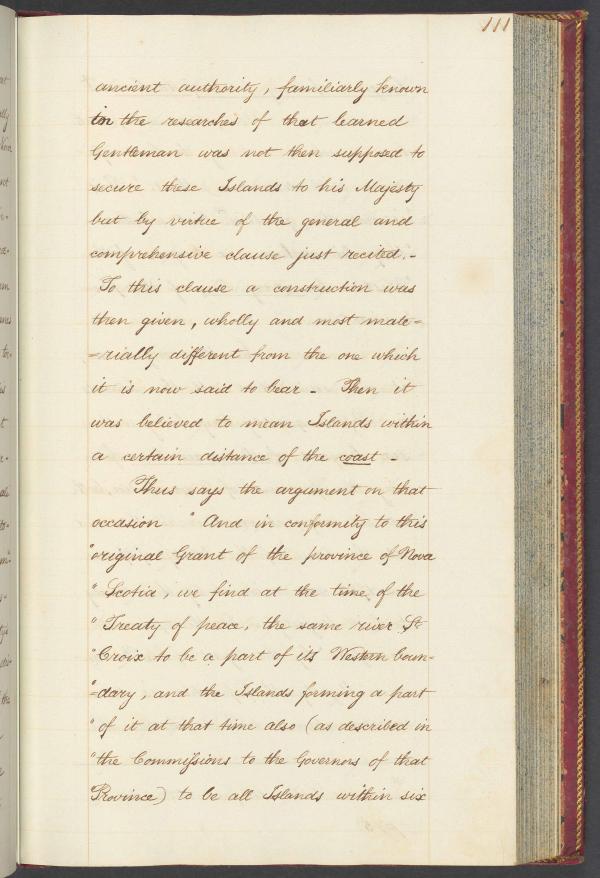 111
ancient authority, familiarly known
in the researches of that learned
Gentleman was not then supposed to
secure these Islands to his Majesty
but by virtue of the general and
comprehensive clause just recited.-
To this clause a construction was
then given, wholly and most mate=
=rially different from the one which
it is now said to bear - Then it
was believed to mean Islands within
a certain distance of the coast -
Thus says the argument on that
occasion " And in conformity to this
"original Grant of the province of Nova
" Scotia, we find at the time of the
" Treaty of peace, the same river St
"Croix to be a part of its Western boun-
"=dary, and the Islands forming a part
" of it at that time also (as described in
"the Commissions to the Governors of that
Province) to be all Islands within six